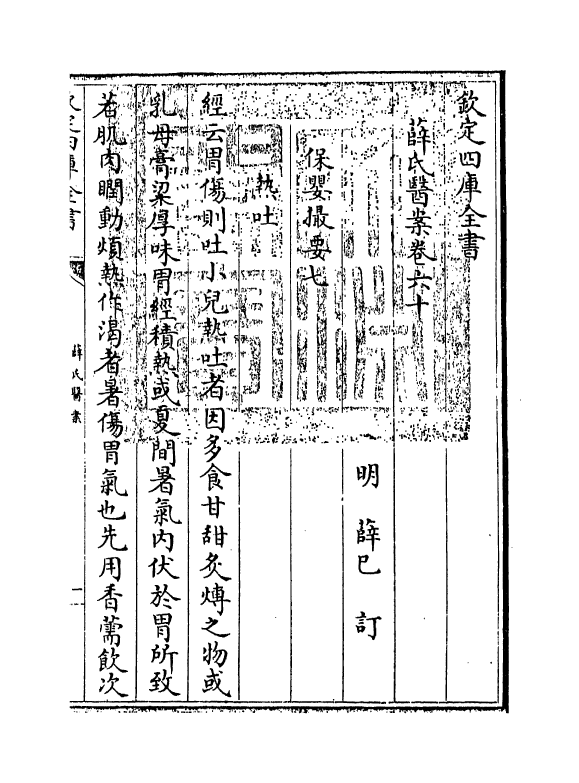 欽定四庫全書
薛氏醫案卷六十
明 薛己 訂
保嬰撮要七
熱吐
經云胃傷則吐小兒熱吐者因多食甘甜炙煿之物或
乳母膏粱厚味胃經積熱或夏間暑氣內伏於胃所致
若肌肉瞤動煩熱作渴者暑傷胃氣也先用香薷飲次
欽定四庫全書
薛氏醫案
一